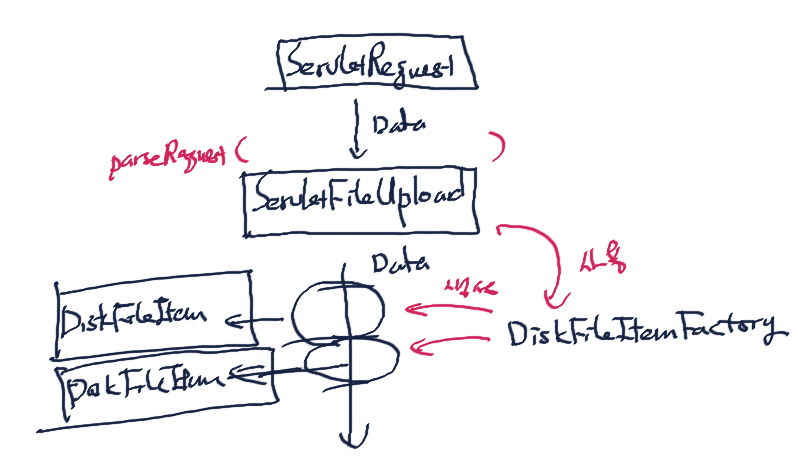 ServletRequest
Data
parseRequest ( )
ServletFileUpload
Data
DiskFileItem
DiskFileItemFactory
DiskFileItem